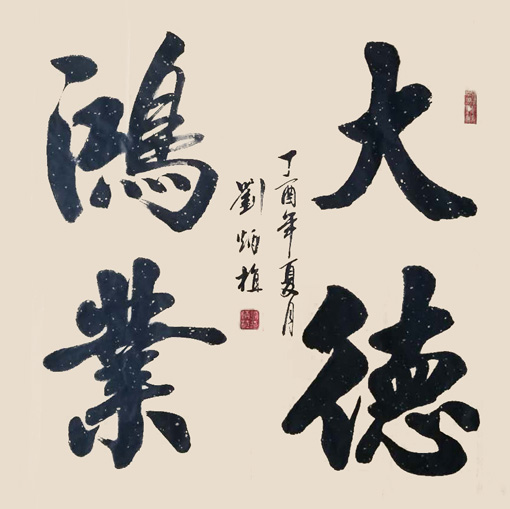 大德
鴻業
丁酉年夏月
劉炳植